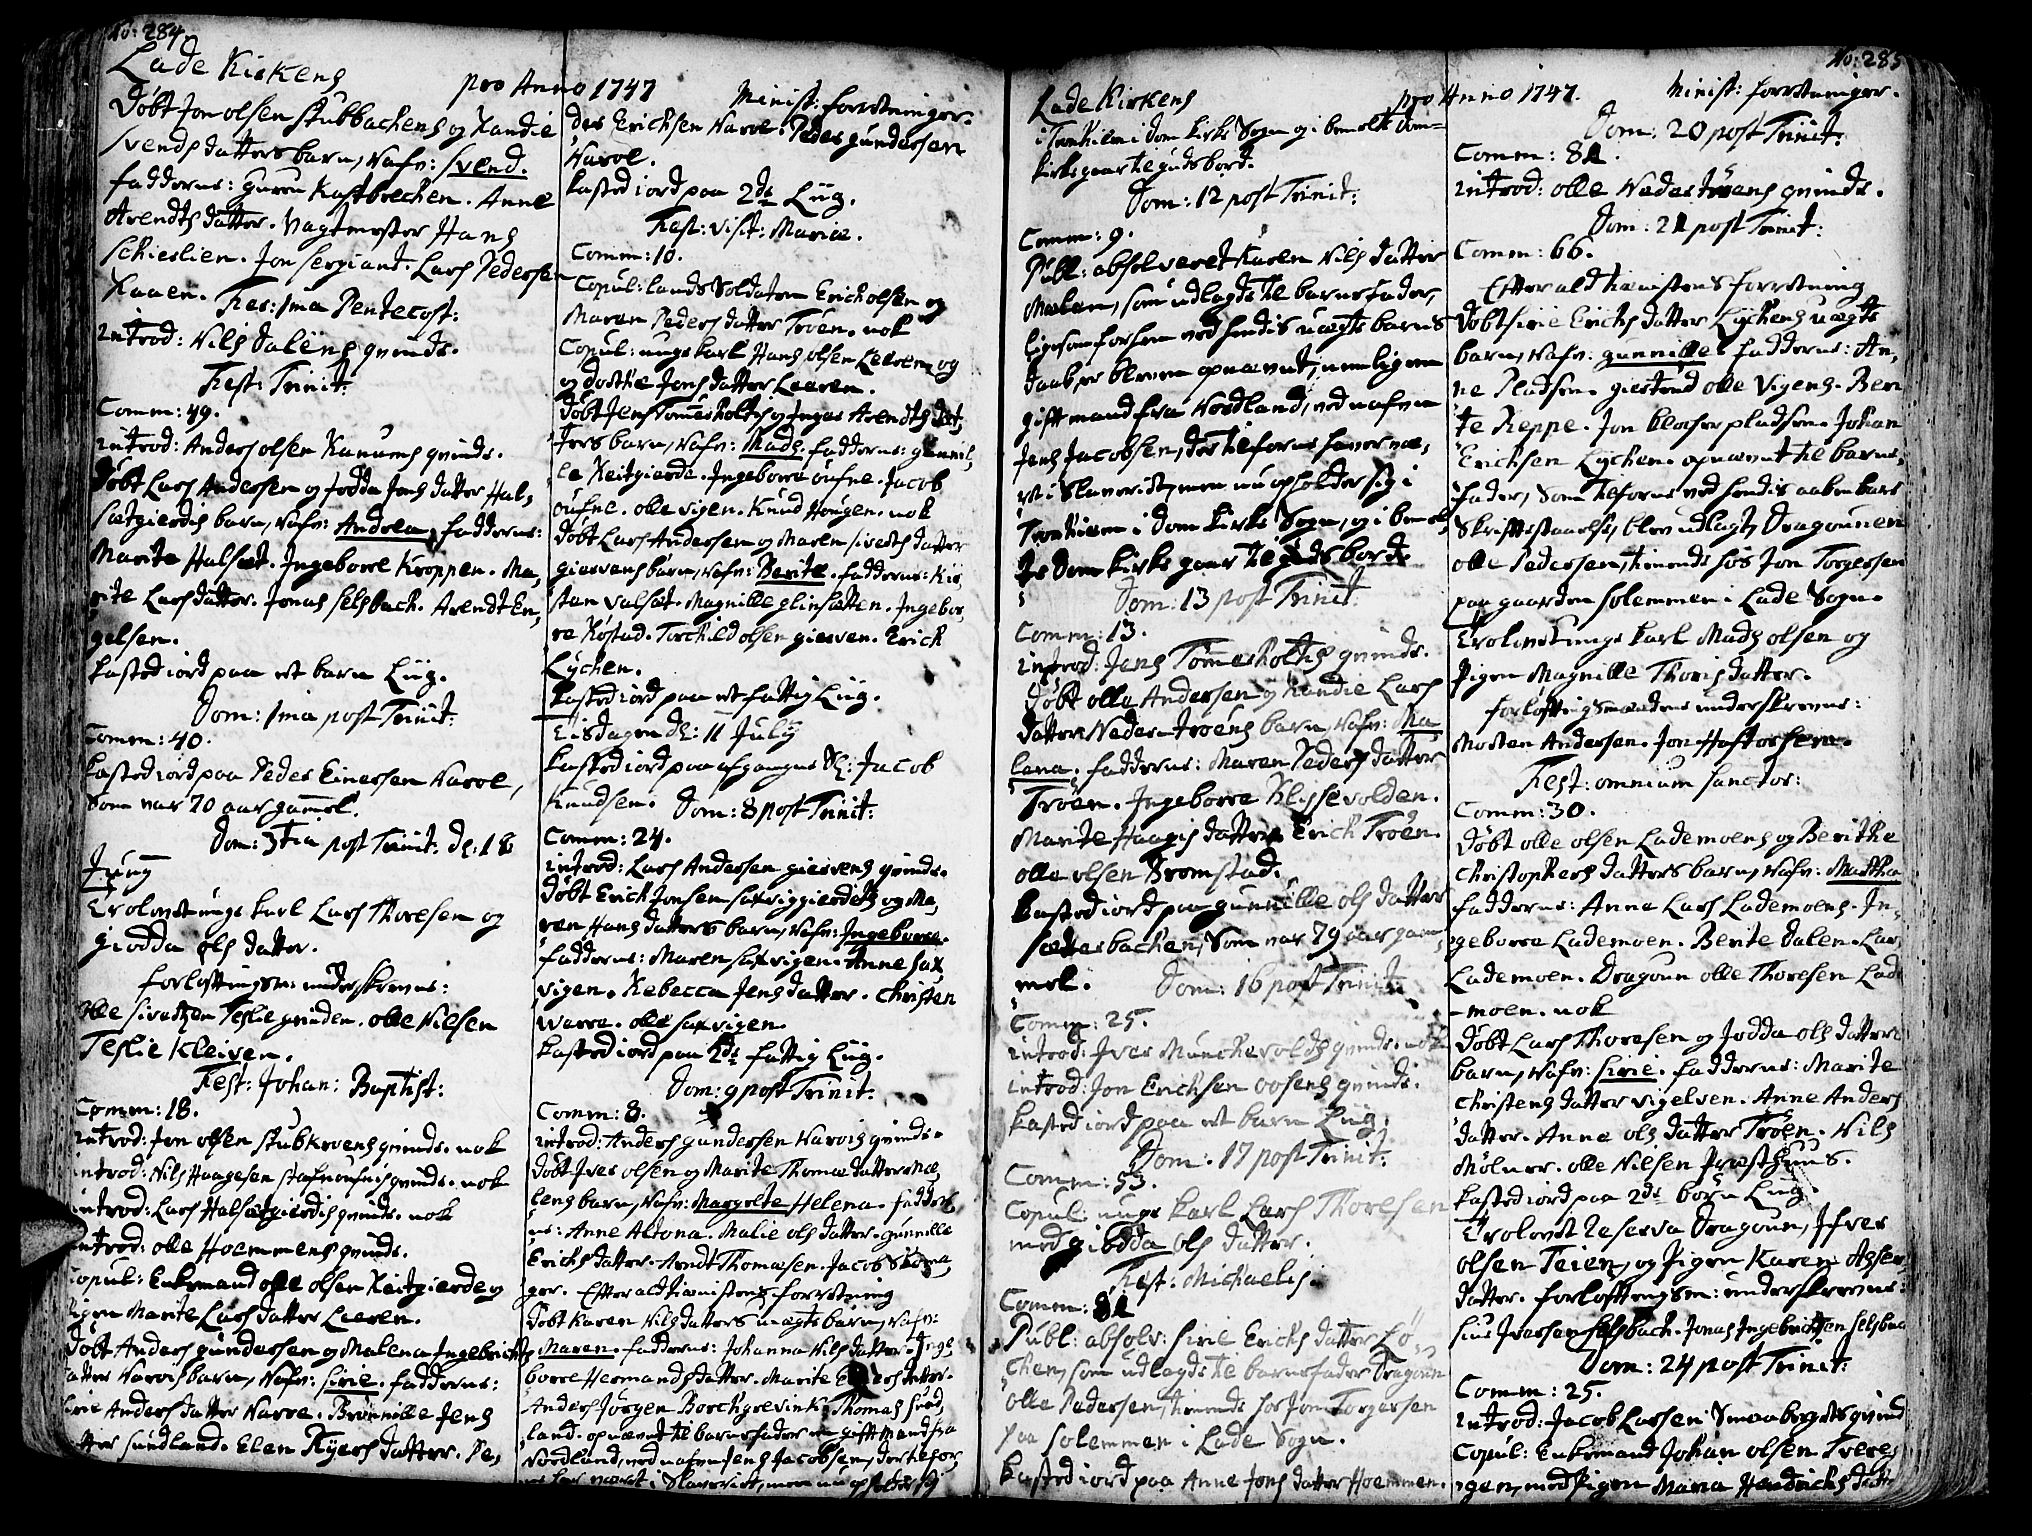 No: 284.
Lade Kirkens
pro Anno 1747
Minist: forretninger.
Døbt Jon olsen Stubbachens og Randie
Svends datters barn, Nafn: Svend.
fadderne: Guren Kastbrechen. Anne
Arendts datter. Vagtmester Hans
Schieslien. Jon sergiant. Lars Pedersen
Ranen. Fer: 1ma Pentecost:
introd: Nils Dalens qvinde.
Fest: Trinit:
Comm: 49.
introd: Anders olsen Ranums qvinde.
Døbt Lars Andersen og Jodda Jens datter Hal,
sætgierdis barn, Nafn: Andrea, fadderne:
Marite Halset. Ingeborre Kroppen. Ma,
rite Lars datter. Jonas selsbach. Arendt En,
gelsen.
kasted iord paa et barn Liig.
Dom: 1ma post Trinit:
Comm: 40.
kasted iord paa Peder Einersen Harol,
som var 70 aar gammel.
Dom: 3tia post Trinit: d: 18
Juny
Trolovet unge karl Lars Thoresen og
giodda ols datter.
forlofningsm: underskrevne:
Olle Sivertsen Teslie grinden. olle Nilsen
Teslie Kleiven.
Fest: Johan: Baptist:
Comm: 18.
introd: Jon olsen stubkroens qvinde. nok
introd: Nils Haagesen qvinde. nok
introd: Lars Halsetgierdis qvinde. nok
introd: olle Hoemmens qvinde.
Copul: Enkemand olle olsen Reitgierde og
Pigen Marite Lars datter Leeren.
Døbt Anders gundersen og Malena Ingebricts
datter Harois barn, Nafn: Sirie. fadderne:
Sirie Anders datter Harre. Brønnille Jens
datter sundland. Elen Ryers datter. Pe,
der Erichsen Harol. Peder gundersen
Harol.
kasted iord paa 2de Liig.
Fest: visit: Mariæ.
Comm: 10.
Copul: lands Soldaten Erich olsen og
Maren Peders datter Troen. nok
Copul: unge karl Hans olsen Leeren og
og dorthe Jons datter Leeren.
Døbt Jens Tømesholts og Inger Arendts dat,
ters barn, Nafn: Mads. fadderne: gunnil,
le Reitgierde. Ingeborre oufne. Jacob
oufne. olle vigen. Knud Hougen. nok
Døbt Lars Andersen og Maren siverts datter
giervens barn, Nafn: Berite. fadderne: Kir,
sten valset. Magnille glinsetten. Ingebor,
re Røstad. Torchild olsen gierven. Erich
Lychen.
kasted iord paa et fattig Liig.
Tisdagen d: 11 July
kasted iord paa afgangne Sl: Jacob
Knudsen. Dom: 8 post Trinit:
Comm: 24.
introd: Lars Andersen giervens qvinde.
Døbt Erich Jonsen saxviggierdets og Ma,
ren Hans datters barn, Nafn: Ingeborre.
fadderne: Maren saxvigen. Anne sax,
vigen. Rebecca Jens datter. Christen
Warre. olle saxvigen.
kasted iord paa 2de fattig Liig.
Dom: 9 post Trinit:
Comm: 8.
introd: Anders gundersen Harois qvinde.
Døbt Iver olsen og Marite Thomæ datter Mæ,
lens barn, Nafn: Margrete Helena. fadder,
ne: Anne Altona. Malie ols datter. gunnille
Erichs datter. Arndt Thomæsen. Jacob Skoma,
ger. Efter altienistens forretning
Døbt Karen Nils datters uægte barn, Nafn:
Maren. fadderne: Johanna Nils datter. Inge,
borre Hermands datter. Marite datter.
Anders Jørgen Borchgrevink. Thomas sund,
land. opnævnt til barnefader en gift mand fra
Nordland, ved nafn Jens Jacobsen, der tilforn
har været i Slaveriet, men nu opholder sig
No: 285
Lade Kirkens
pro Anno 1747.
Minist: forretninger.
i Tronhiem i dom kirke Sogn og i bemelte dom=
kirke gaar til guds bord.
Dom: 12 post Trinit:
Comm: 9.
Publ: absolveret Karen Nils datter
Mælen, som udlagde til barnefader,
ligesom forhen ved hendis uægte barns
daab, er bleven opnævnt, nemlig en
gift mand fra Nordland, ved nafn
Jens Jacobsen, der tilforn haver væ,
ret i Slaveriet, men nu opholder sig i
Tronhiem i dom kirke Sogn, og i bemel,
te dom kirke gaar til guds bord.
Dom: 13 post Trinit:
Comm: 13.
introd: Jens Tømesholtis qvinde.
Døbt olle Andersen og Randie Lars
datter Neder-troens barn, Nafn: Ma
lena. fadderne: Maren Peders datter
Troen. Ingeborre Klysevolden.
Marite Haagis datter. Erich Troen.
olle olsen Bromstad.
kasted iord paa gunnille ols datter
sæterbachen, som var 79 aar gam,
mel. Dom: 16 post Trinit:
Comm: 25.
introd: Iver Munchevolds qvinde. nok
introd: Jon Erichsen oosens qvinde.
kasted iord paa et barn Liig.
Dom: 17 post Trinit:
Comm: 53.
Copul: unge karl Lars Thoresen
med giodda ols datter.
Fest: Michaelis
Comm: 81
Publ: absolv: sirie Erichs datter Ly,
chen, som udlagde til barnefader Dragoun
olle Pedersen, tienende hos Jon Torgersen
paa Solemmen i Lade Sogn.
kasted iord paa Anne Jons datter Hoemmen.
Dom: 20 post Trinit:
Comm: 81.
introd: olle Neder troens qvinde.
Dom: 21 post Trinit:
Comm: 66.
Efter altienistens forretning
Døbt sirie Erichs datter Lychens uægte
barn, Nafn: gunnille fadderne: An,
ne Pladsen. giertrud olle vigens. Beri
te Reppe. Jon klocherpladsen. Johan
Erichsen Lychen. opnævnt til barne,
fader, som tilforne ved hendis aabenbare
Skriftestaaelse, blev udlagt, Dragounen
olle Pedersen, tienende hos Jon Torgersen
paa gaarden solemmen i Lade Sogn.
Trolovet unge karl Mads olsen og
Pigen Magnille Thoris datter.
forlofningsmændene underskrevne:
Morten Andersen. Jon Haftorsen.
Fest: omnium sanctor:
Comm: 30.
Døbt olle olsen Lademoens og Berithe
Christophers datters barn, Nafn: Martha
fadderne: Anne Lars Lademoens. In,
geborre Lademoen. Berite dalen. Lars
Lademoen. Dragoun olle Thoresen Lade
moen. nok
Døbt Lars Thoresen og Jodda ols datters
barn, Nafn: Sirie. fadderne: Marite
Christens datter vigelven. Anne Anders
datter. Anne ols datter Troen. Nils
Mølner. olle Nilsen Præsthuus.
kasted iord paa 2de børn Liig.
Trolovet Reserva Dragoun, Ifver
olsen Teien, og Pigen Karen Olser
datter. forlofningsm: underskrevne:
Siur Iversen selsbach. Jonas Ingebrictsen selsbac
Dom: 24 post Trinit:
Comm: 25.
introd: Jacob Larsen Smaabergets qvind
Copul: Enkemand Johan olsen Tveres
gen, med Pigen Maria Hendrichs datter